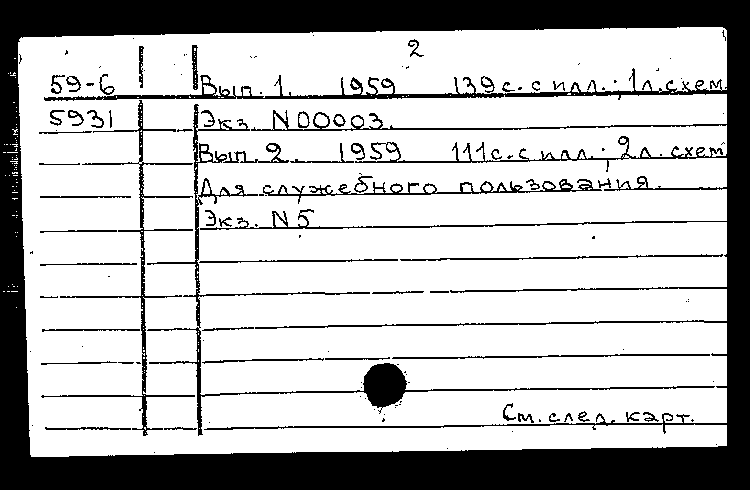 2
59-6 Вып. 1. 1959 139с. с илл.; 1л. схем
5931 Экз. N00003.
Вып. 2. 1959 111с. с илл.; 2л. схем
Для служебного пользования.
Экз. N5
См. след. карт.